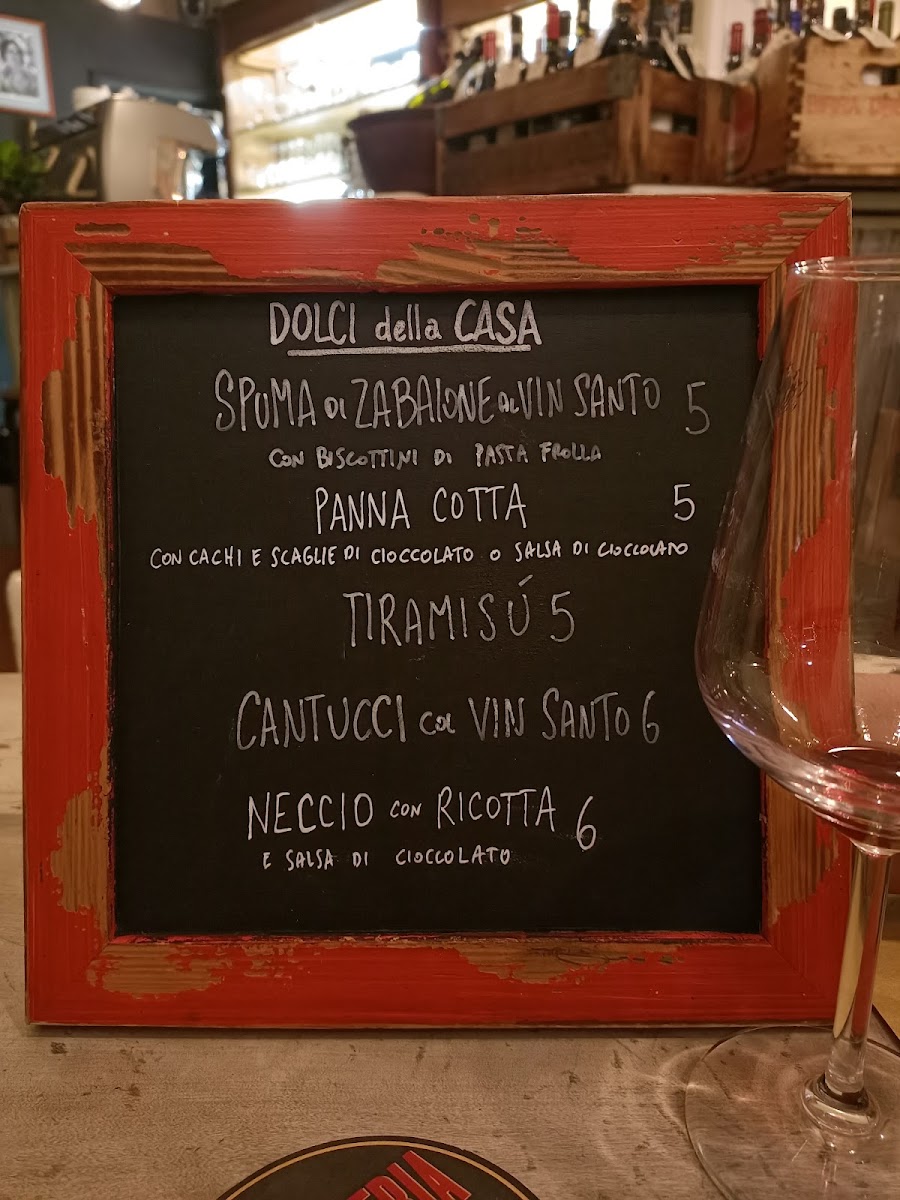 DOLCI della CASA
SPUMA di ZABAIONE al VIN SANTO 5
CON BISCOTTINI DI PASTA FROLLA
PANNA COTTA 5
CON CACHI E SCAGLIE DI CIOCCOLATO O SALSA DI CIOCCOLATO
TIRAMISÚ 5
CANTUCCI col VIN SANTO 6
NECCIO CON RICOTTA 6
E SALSA DI CIOCCOLATO